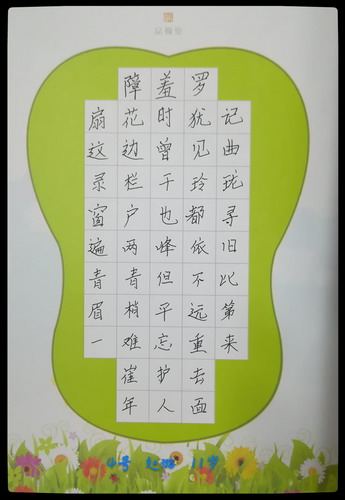 障羞罗
扇花时犹记
这边曾见曲
录栏干玲珑
窗户也都寻
遍两峰依旧
青青但不比
眉梢平远第
一难忘重来
崔护去
年人面
4号 11岁